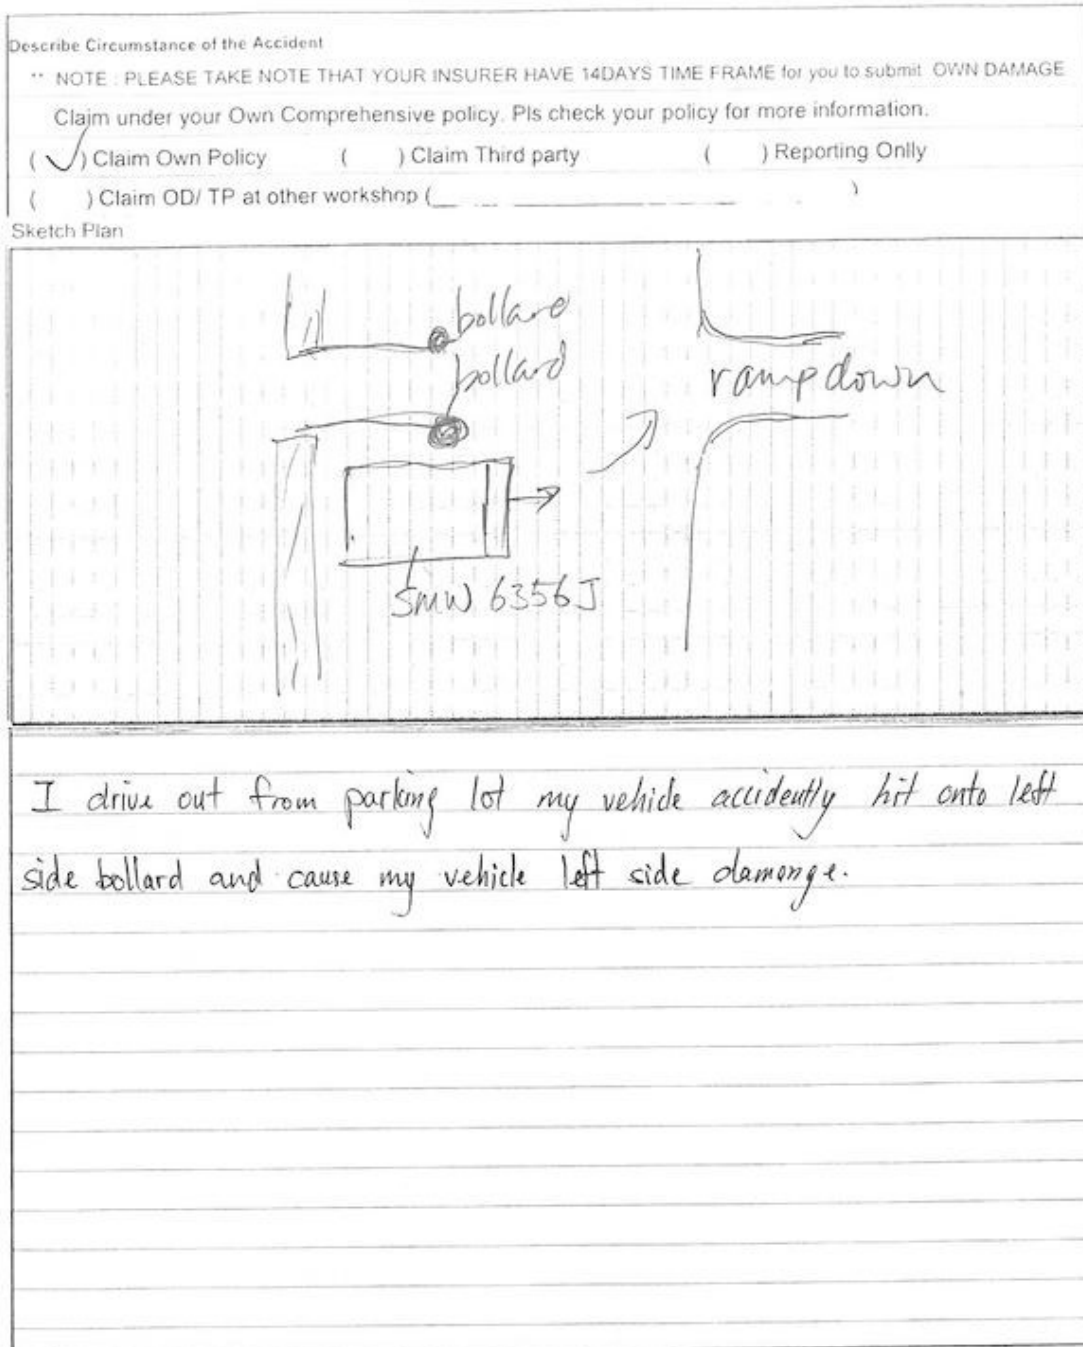 Describe Circumstance of the Accident
** NOTE : PLEASE TAKE NOTE THAT YOUR INSURER HAVE 14DAYS TIME FRAME for you to submit OWN DAMAGE
Claim under your Own Comprehensive policy. Pls check your policy for more information.
( ✓ ) Claim Own Policy ( ) Claim Third party ( ) Reporting Onlly
( ) Claim OD/ TP at other workshop ( )
Sketch Plan
bollard
bollard
ramp down
SMW 6356J
I drive out from parking lot my vehicle accidently hit onto left
side bollard and cause my vehicle left side damange.